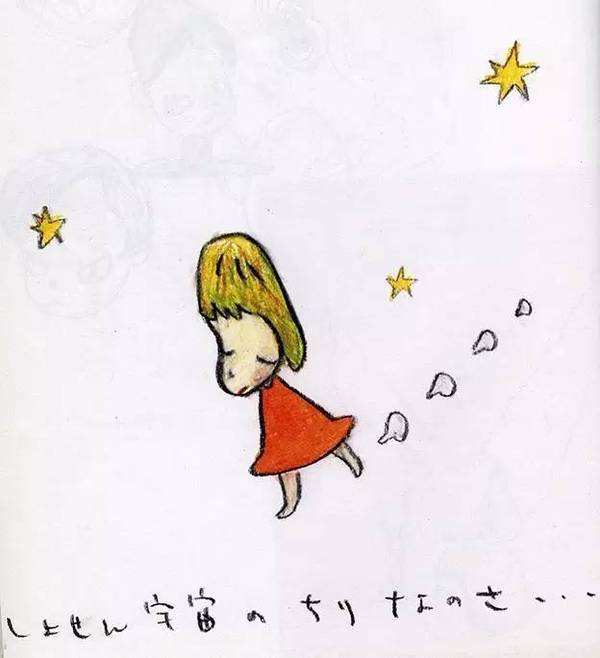 しょせん宇宙のちりなのさ・・・